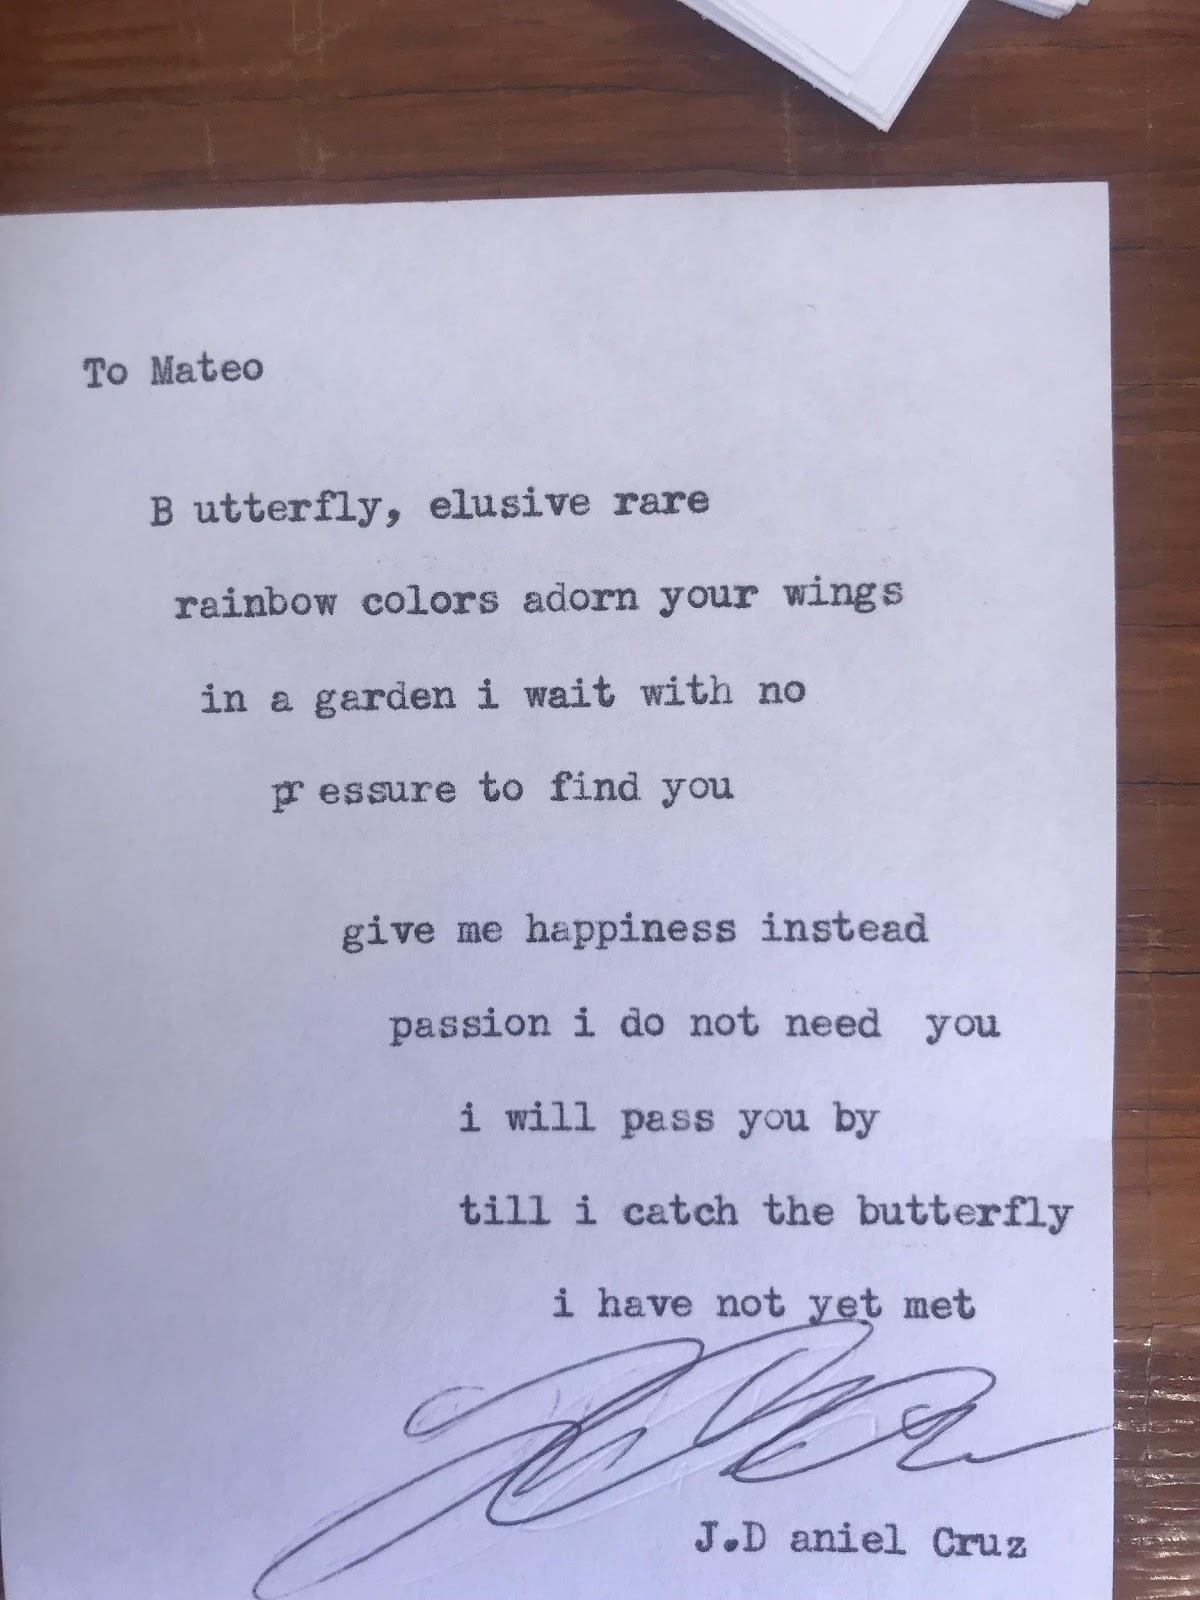 To Mateo
B utterfly, elusive rare
rainbow colors adorn your wings
in a garden i wait with no
pr essure to find you
give me happiness instead
passion i do not need  you
i will pass you by
till i catch the butterfly
i have not yet met
J.D aniel Cruz